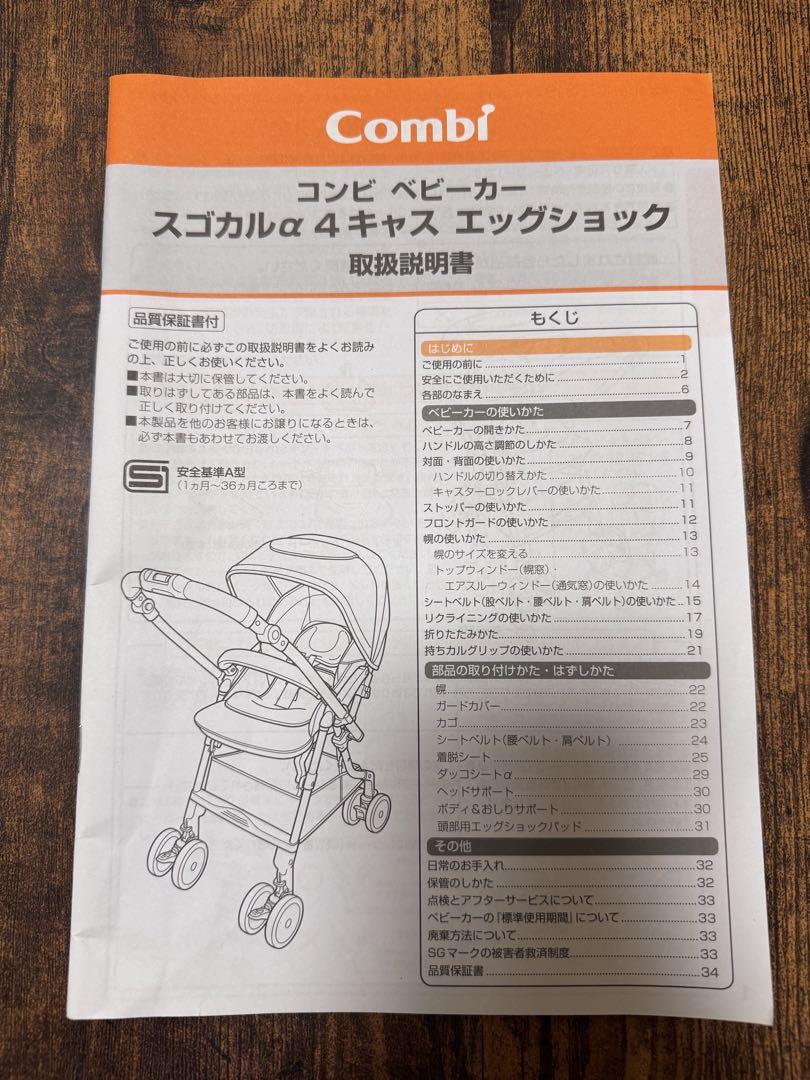 Combi
コンビ ベビーカー
スゴカルα 4キャス エッグショック
取扱説明書
品質保証書付
ご使用の前に必ずこの取扱説明書をよくお読み
の上、正しくお使いください。
■本書は大切に保管してください。
■取りはずしてある部品は、本書をよく読んで
正しく取り付けてください。
■本製品を他のお客様にお譲りになるときは、
必ず本書もあわせてお渡しください。
安全基準A型
(1ヵ月〜36ヵ月ころまで)
もくじ
はじめに
ご使用の前に……1
安全にご使用いただくために……2
各部のなまえ……6
ベビーカーの使いかた
ベビーカーの開きかた……7
ハンドルの高さ調節のしかた……8
対面・背面の使いかた……9
ハンドルの切り替えかた……10
キャスターロックレバーの使いかた……11
ストッパーの使いかた……11
フロントガードの使いかた……12
幌の使いかた……13
幌のサイズを変える……13
トップウィンドー(幌窓)・
エアスルーウィンドー(通気窓)の使いかた……14
シートベルト(股ベルト・腰ベルト・肩ベルト)の使いかた…15
リクライニングの使いかた……17
折りたたみかた……19
持ちカルグリップの使いかた……21
部品の取り付けかた・はずしかた
幌……22
ガードカバー……22
カゴ……23
シートベルト(腰ベルト・肩ベルト)……24
着脱シート……25
ダッコシートα……29
ヘッドサポート……30
ボディ&おしりサポート……30
頭部用エッグショックパッド……31
その他
日常のお手入れ……32
保管のしかた……32
点検とアフターサービスについて……33
ベビーカーの『標準使用期間』について……33
廃棄方法について……33
SGマークの被害者救済制度……33
品質保証書……34